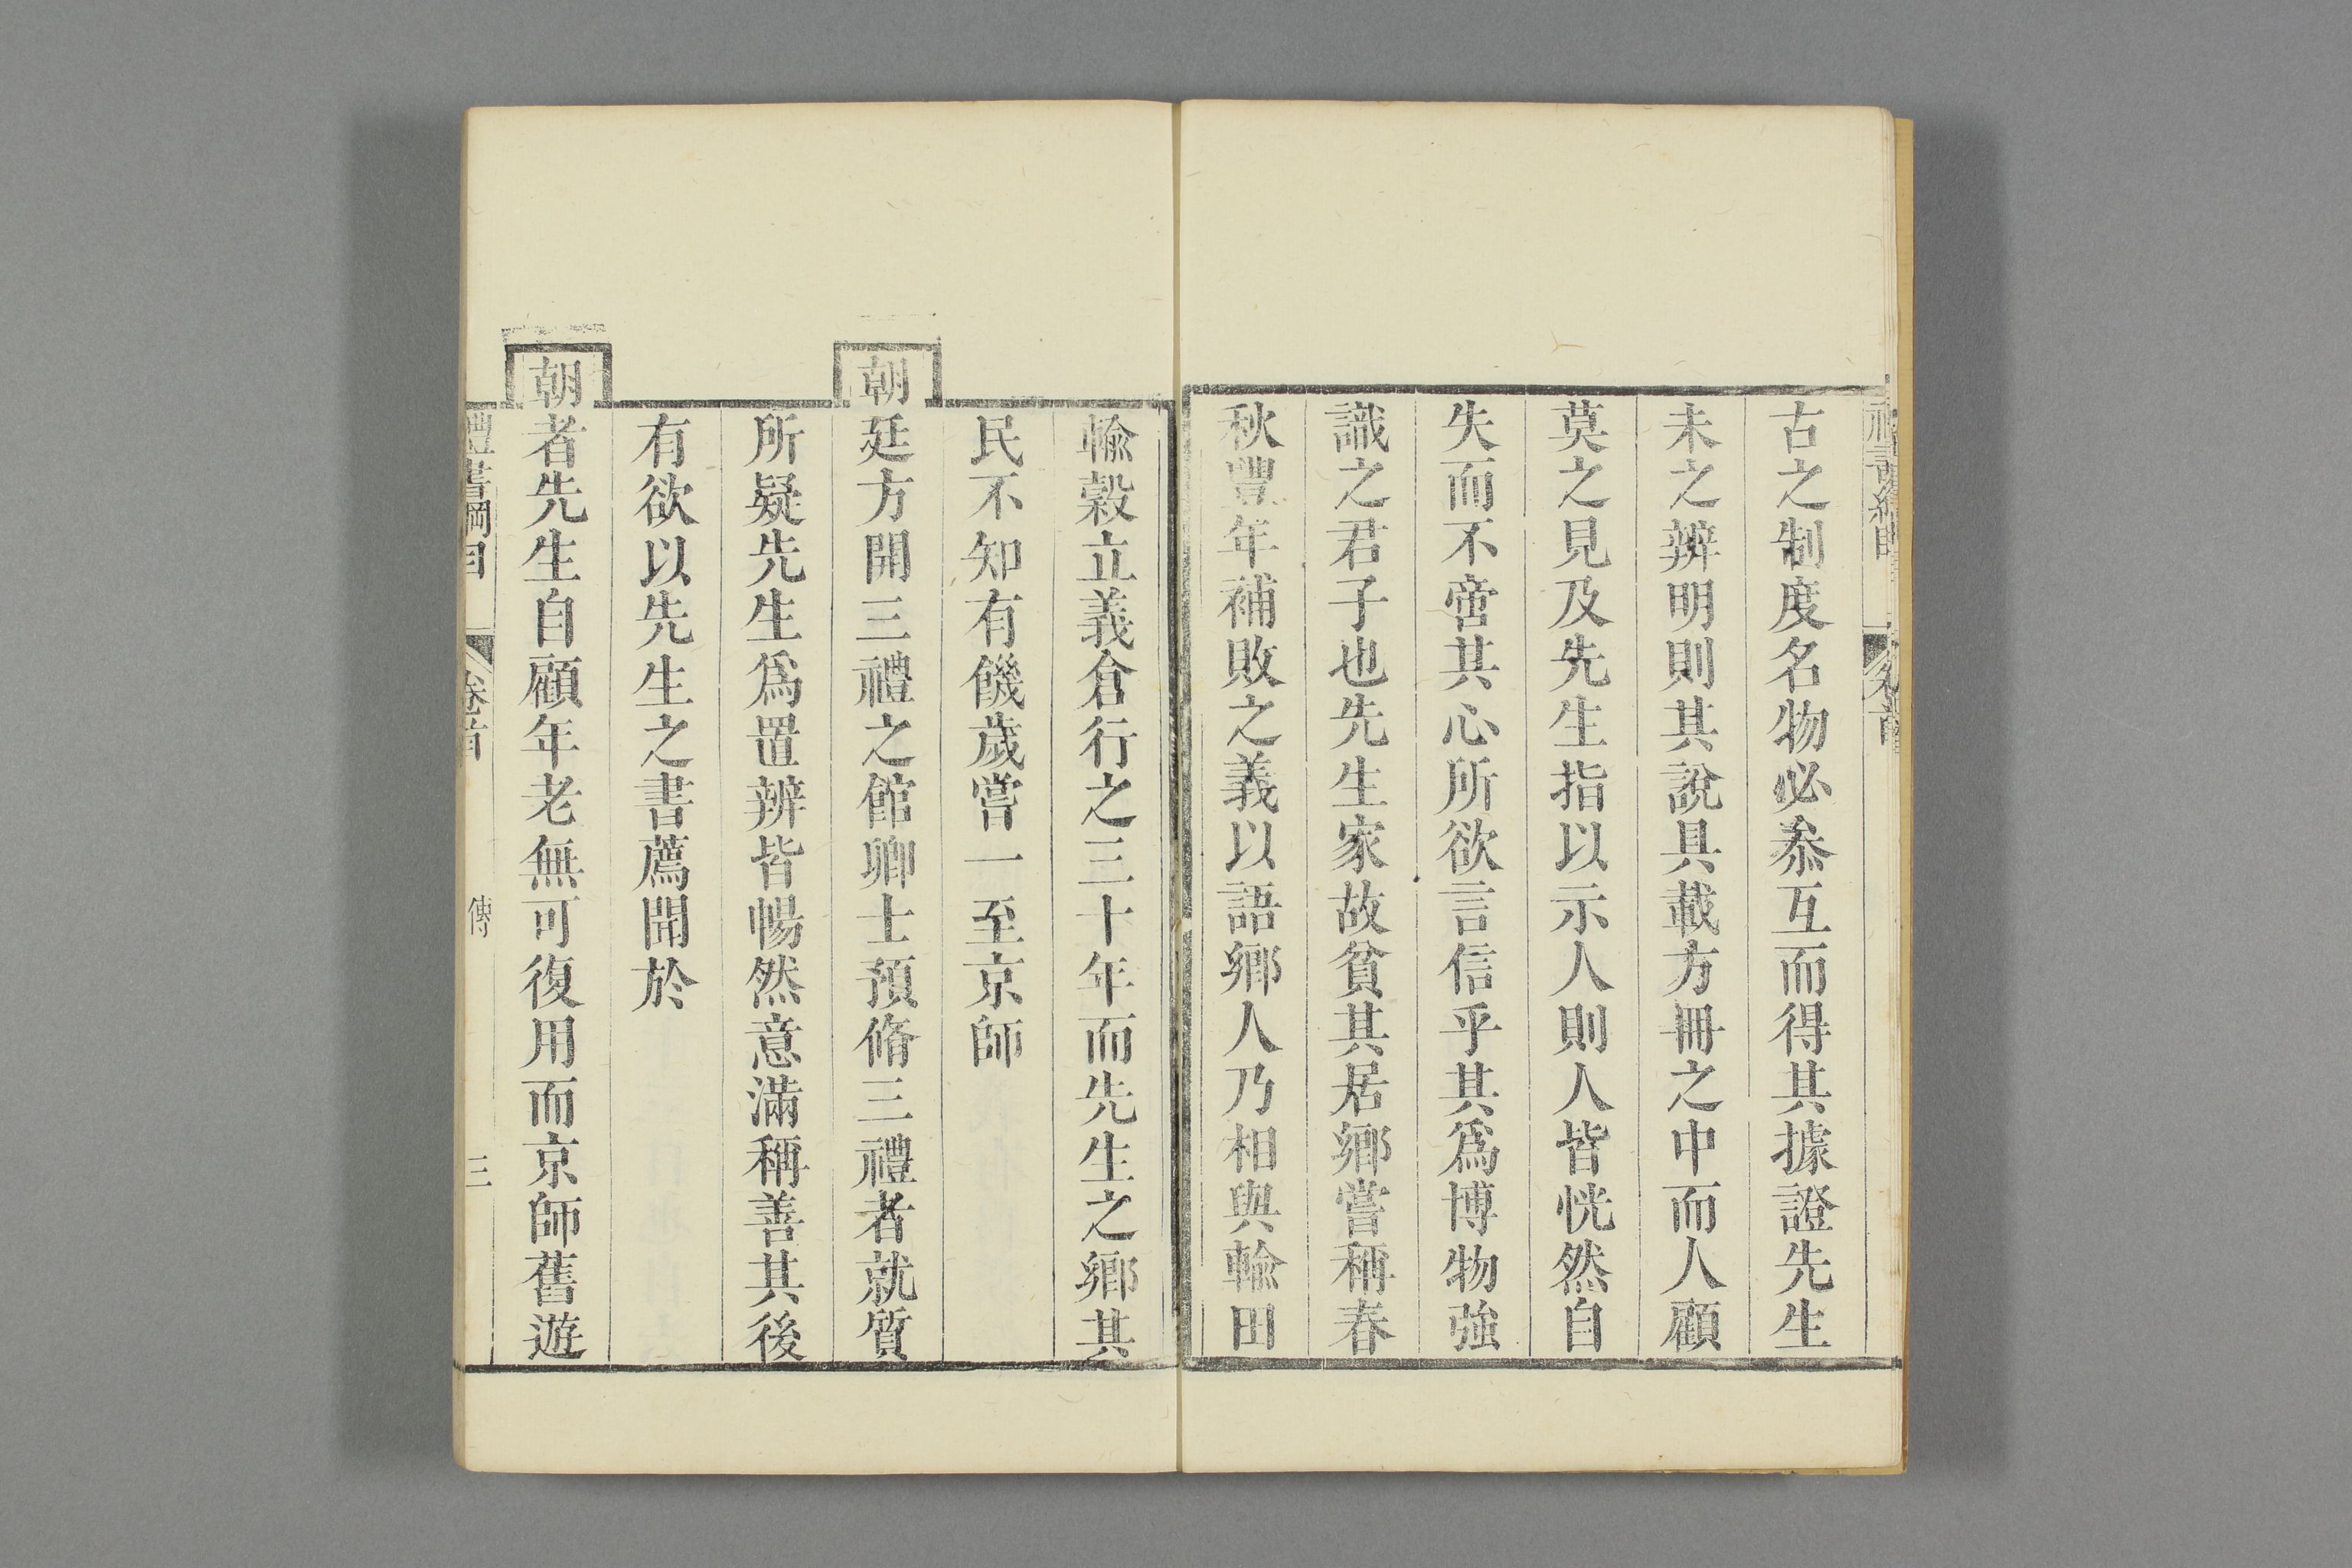 古之制度名物必叅互而得其據證先生
未之辨明則其說具載方冊之中而人顧
莫之見及先生指以示人則人皆恍然自
失而不啻其心所欲言信乎其爲博物強
識之君子也先生家故貧其居鄉嘗稱春
秋豐年補敗之義以語鄉人乃相與輸田
輸穀立義倉行之三十年而先生之鄉其
民不知有饑歲嘗一至京師
朝廷方開三禮之館卿士預脩三禮者就質
所疑先生爲置辨皆暢然意滿稱善其後
有欲以先生之書薦聞於
朝者先生自顧年老無可復用而京師舊遊
禮書綱目 卷首 傳 三